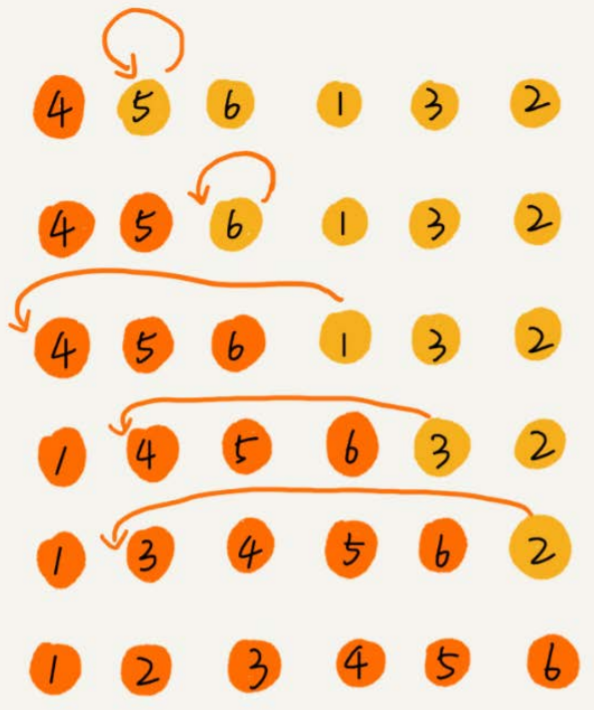 4 5 6 1 3 2
4 5 6 1 3 2
4 5 6 1 3 2
1 4 5 6 3 2
1 3 4 5 6 2
1 2 3 4 5 6